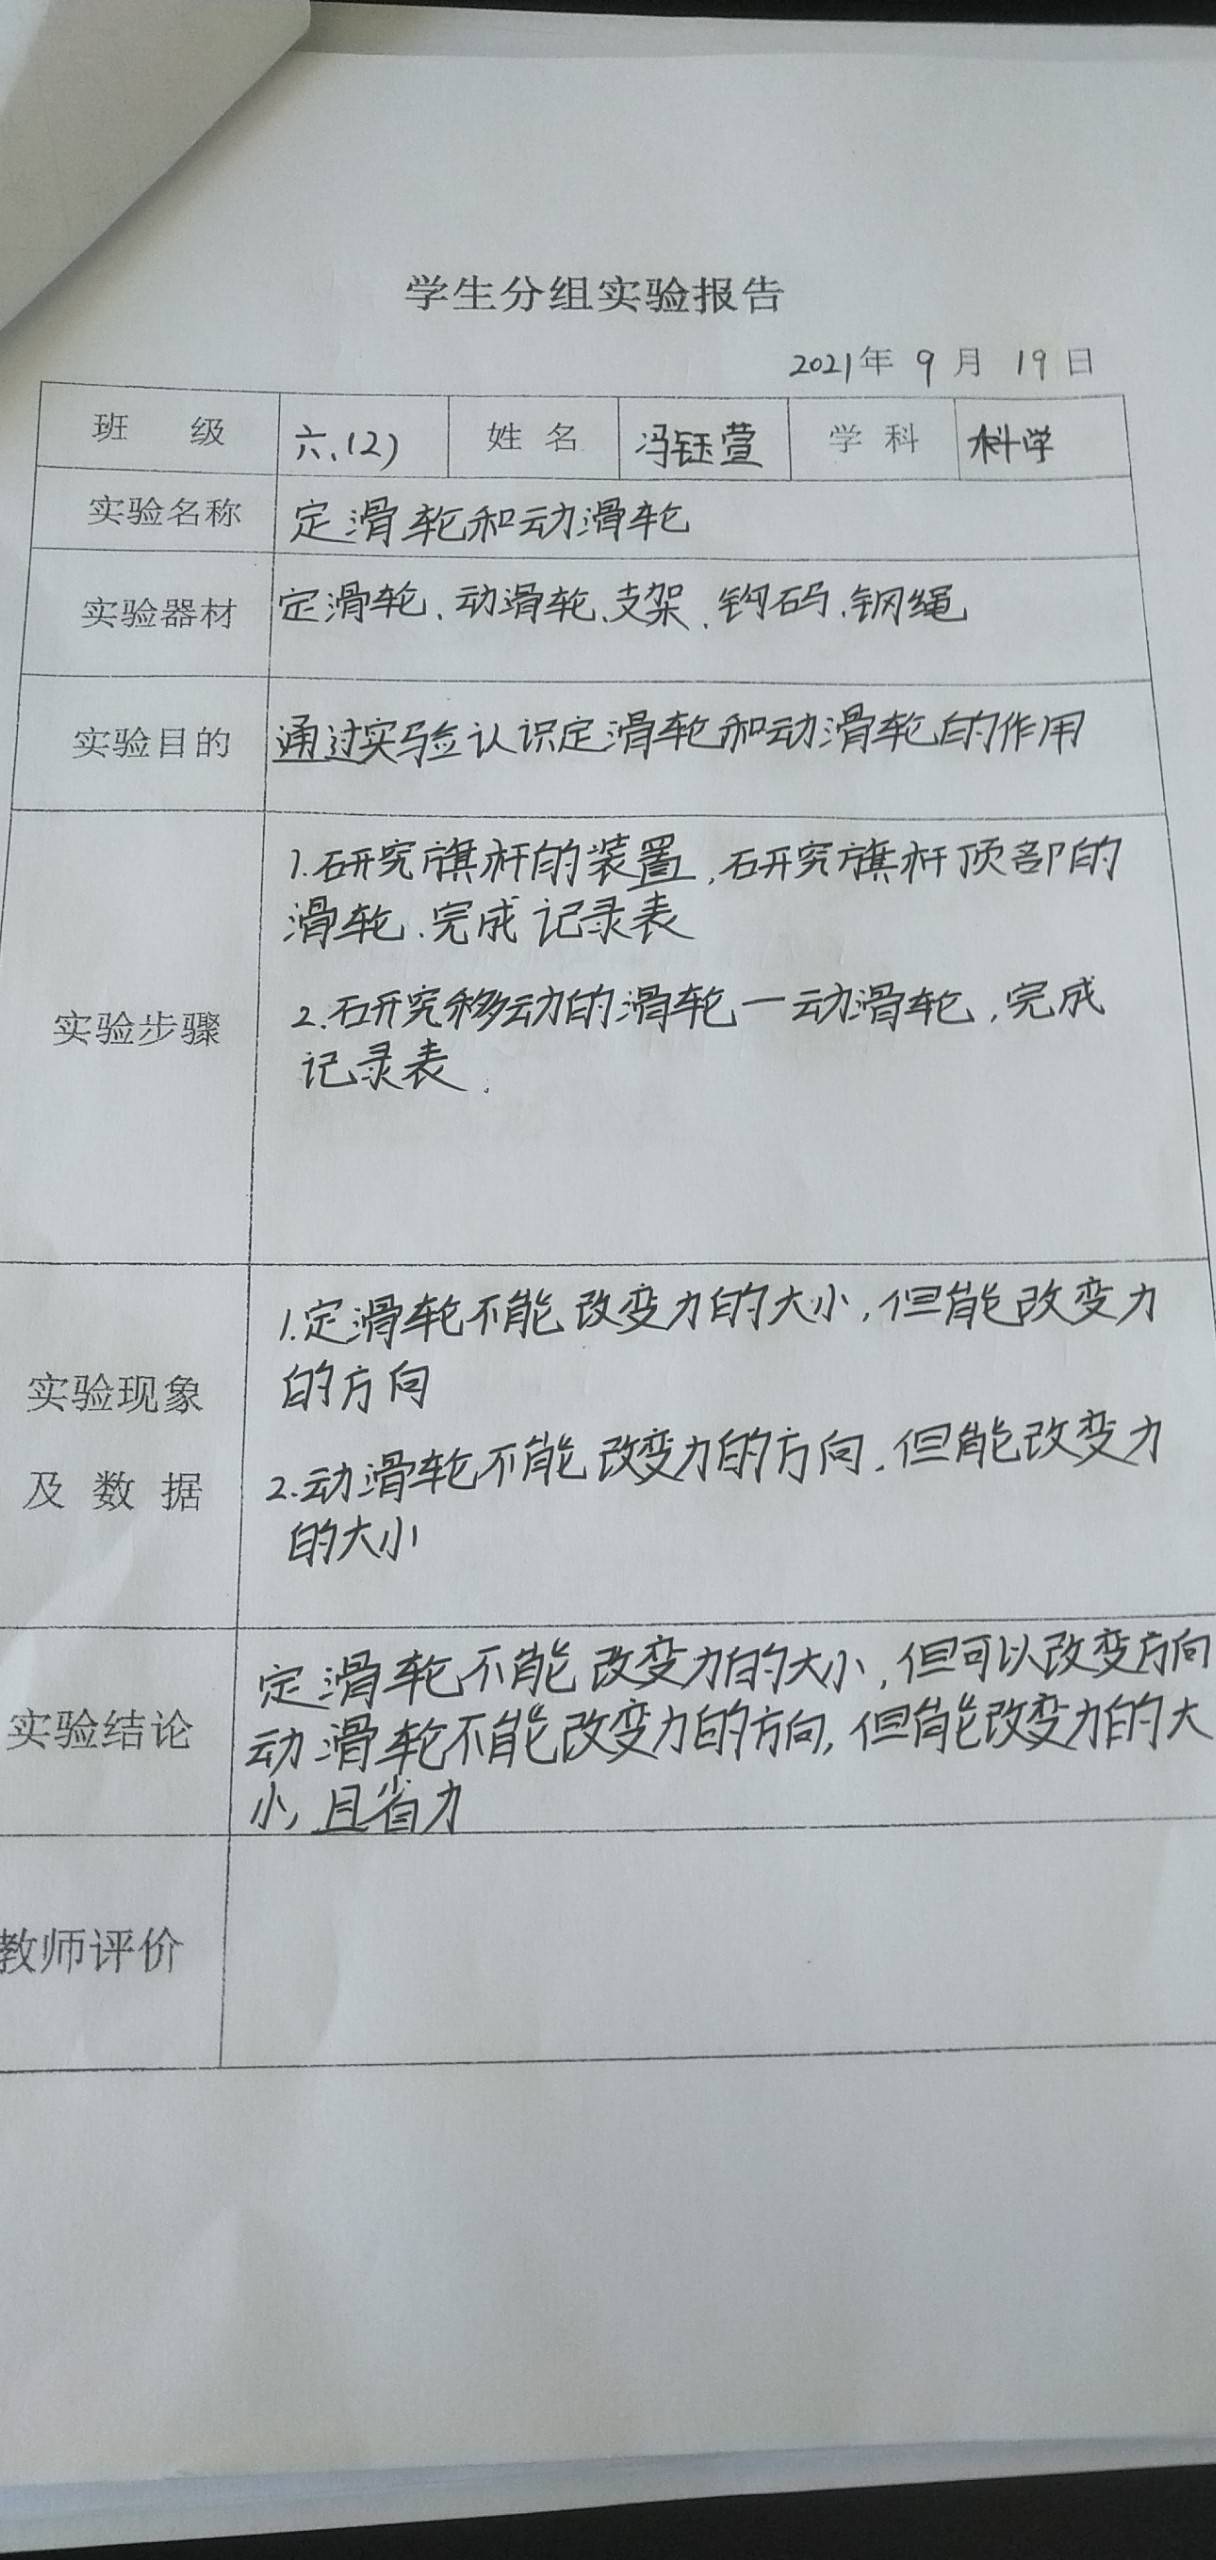 学生分组实验报告
2021年 9 月 19 日
班 级 六.(2) 姓 名 冯钰萱 学 科 科学
实验名称 定滑轮和动滑轮
实验器材 定滑轮、动滑轮、支架、钩码、钢绳
实验目的 通过实验认识定滑轮和动滑轮的作用
实验步骤
1.研究旗杆的装置,研究旗杆顶部的
滑轮、完成记录表
2.研究移动的滑轮一动滑轮,完成
记录表.
实验现象
及 数 据
1.定滑轮不能改变力的大小,但能改变力
的方向
2.动滑轮不能改变力的方向,但能改变力
的大小
实验结论
定滑轮不能改变力的大小,但可以改变方向
动滑轮不能改变力的方向,但能改变力的大
小,且省力
教师评价